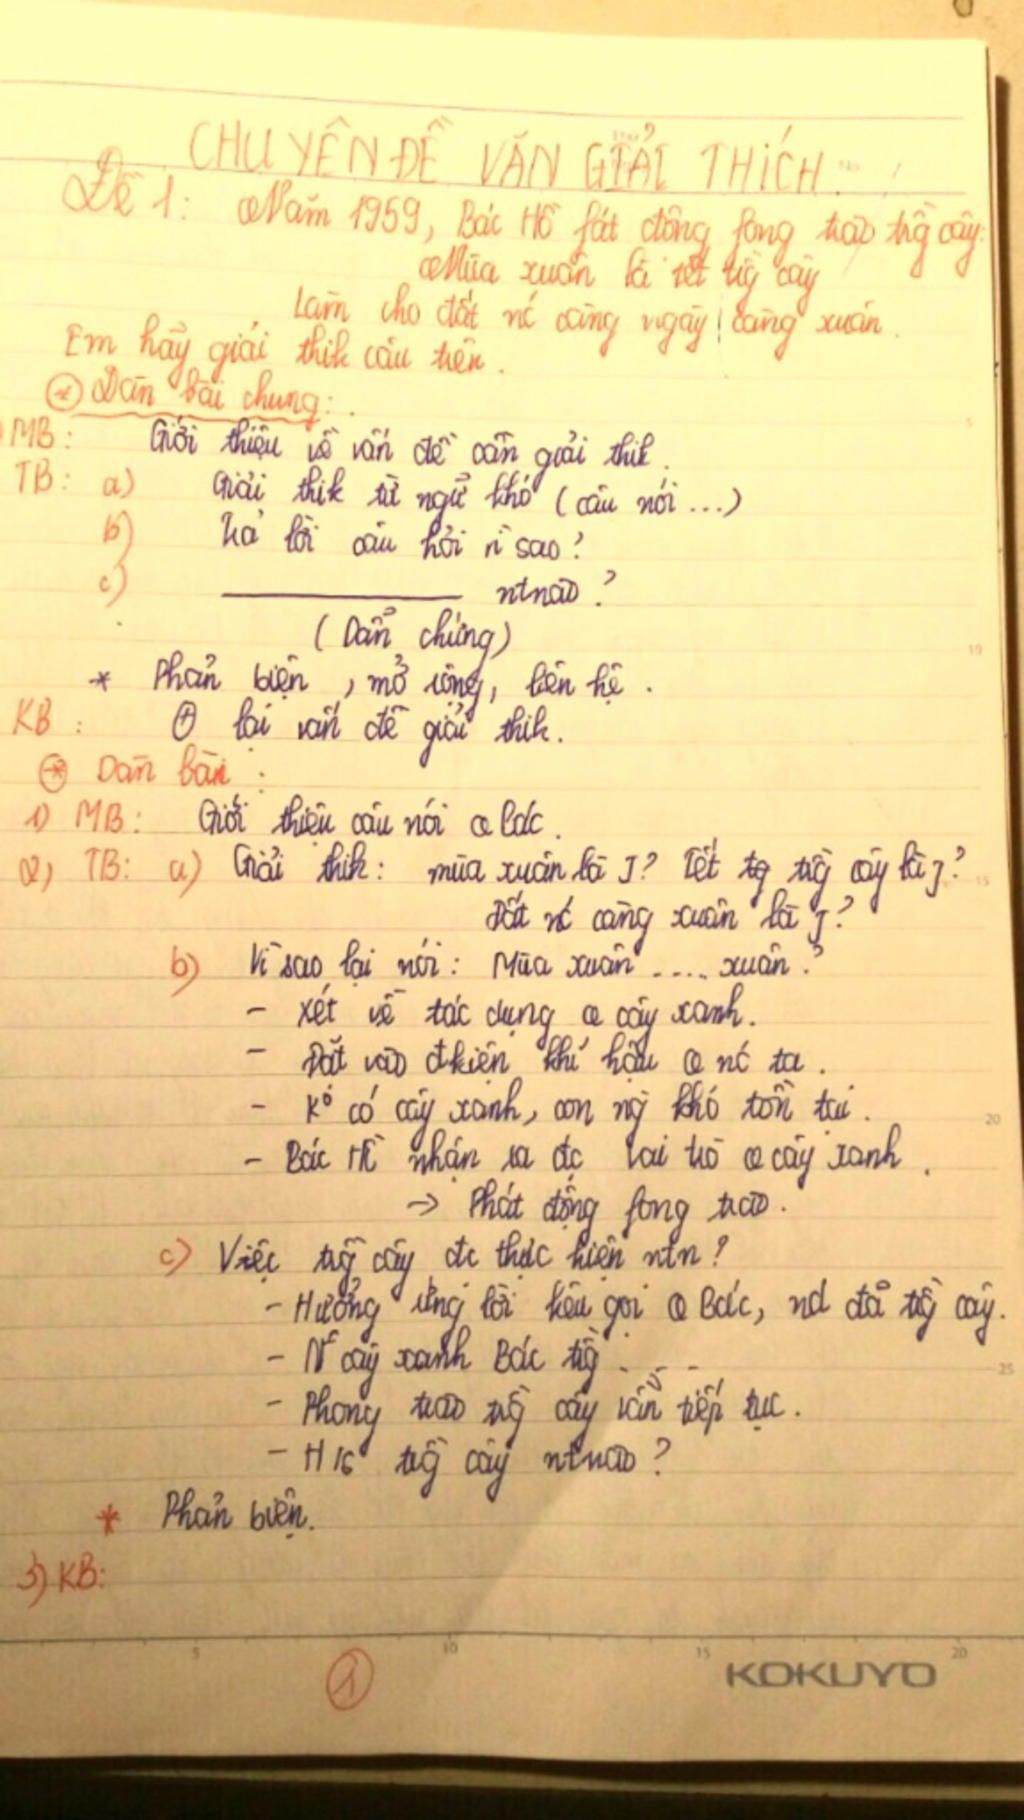 CHUYÊN ĐỀ VĂN GIẢI THÍCH
Đề 1: Năm 1959, Bác Hồ fát động fong trào trồg cây:
Mùa xuân là tết trồg cây
Làm cho đất nc càng ngày càng xuân.
Em hãy giải thik câu trên.
* Dàn bài chung:
MB: Giới thiệu về vấn đề cần giải thik.
TB: a) Giải thik từ ngữ khó (câu nói ...)
b) Trả lời câu hỏi vì sao?
c) ———— ntnào?
(Dẫn chứng)
* Phản biện, mở rộng, liên hệ.
KB: lại vấn đề giải thik.
* Dàn bài:
1) MB: Giới thiệu câu nói Bác.
2) TB: a) Giải thik: mùa xuân là J? Tết trồg cây là J?
Đất nc càng xuân là J?
b) Vì sao lại nói: Mùa xuân .... xuân?
- Xét về tác dụng cây xanh.
- Đặt vào đkiện khí hậu nc ta.
- Ko có cây xanh, con ng khó tồn tại.
- Bác Hồ nhận ra đc vai trò cây xanh.
→ Phát động fong trào.
c) Việc trồg cây đc thực hiện ntn?
- Hưởng ứng lời kêu gọi Bác, nd đã trồg cây.
- cây xanh Bác trồg . - -
- Phong trào trồg cây vẫn tiếp tục.
- trồg cây ntnào?
* Phản biện.
3) KB:
5 10 15 20
1
KOKUYO